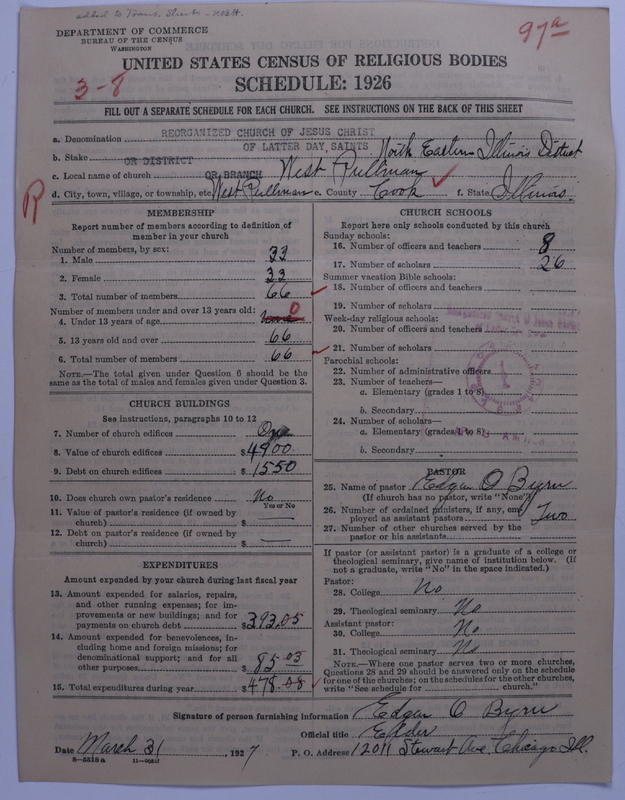 added to Trans. Sheets - NOBH.
DEPARTMENT OF COMMERCE
BUREAU OF THE CENSUS
WASHINGTON
97a
UNITED STATES CENSUS OF RELIGIOUS BODIES
3-8
SCHEDULE: 1926
FILL OUT A SEPARATE SCHEDULE FOR EACH CHURCH. SEE INSTRUCTIONS ON THE BACK OF THIS SHEET
a. Denomination REORGANIZED CHURCH OF JESUS CHRIST
OF LATTER DAY SAINTS
b. Stake OR DISTRICT North Eastern Illinois District
c. Local name of church OR BRANCH West Pullman
d. City, town, village, or township, etc. West Pullman e. County Cook f. State Illinois.
R
MEMBERSHIP
Report number of members according to definition of
member in your church
Number of members, by sex:
1. Male 33
2. Female 33
3. Total number of members 66
Number of members under and over 13 years old:
4. Under 13 years of age None 0
5. 13 years old and over 66
6. Total number of members 66
NOTE.—The total given under Question 6 should be
same as the total of males and females given under Question 3.
CHURCH BUILDINGS
See instructions, paragraphs 10 to 12
7. Number of church edifices One
8. Value of church edifices $4900
9. Debt on church edifices $1550
10. Does church own pastor's residence No
Yes or No
11. Value of pastor's residence (if owned by
church) $
12. Debt on pastor's residence (if owned by
church) $
EXPENDITURES
Amount expended by your church during last fiscal year
13. Amount expended for salaries, repairs,
and other running expenses; for im-
provements or new buildings; and for
payments on church debt $393.05
14. Amount expended for benevolences, in-
cluding home and foreign missions; for
denominational support; and for all
other purposes $85.03
15. Total expenditures during year $478.08
CHURCH SCHOOLS
Report here only schools conducted by this church
Sunday schools:
16. Number of officers and teachers 8
17. Number of scholars 26
Summer vacation Bible schools:
18. Number of officers and teachers
19. Number of scholars
Week-day religious schools:
20. Number of officers and teachers
21. Number of scholars
Parochial schools:
22. Number of administrative officers
23. Number of teachers—
a. Elementary (grades 1 to 8)
b. Secondary
24. Number of scholars—
a. Elementary (grades 1 to 8)
b. Secondary
PASTOR
25. Name of pastor Edgar O Byrn
(If church has no pastor, write "None")
26. Number of ordained ministers, if any, em-
ployed as assistant pastors Two
27. Number of other churches served by the
pastor or his assistants
If pastor (or assistant pastor) is a graduate of a college or
theological seminary, give name of institution below. (If
not a graduate, write "No" in the space indicated.)
Pastor:
28. College No
29. Theological seminary No
Assistant pastor:
30. College No
31. Theological seminary No
NOTE.—Where one pastor serves two or more churches,
Questions 28 and 29 should be answered only on the schedule
for one of the churches; on the schedules for the other churches,
write "See schedule for church."
Signature of person furnishing information Edgar O Byrn
Official title Elder
Date March 31, 1927 P. O. Address 12011 Stewart Ave. Chicago Ill.
8-5518a